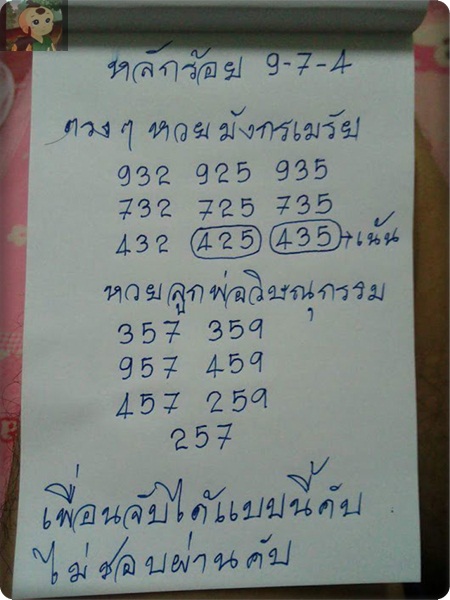 หลักร้อย 9-7-4
ตรงๆ หวยมังกรเมรัย
932 925 935
732 725 735
432 425 435 →เน้น
หวยลูกพ่อวิษณุกรรม
357 359
957 459
457 259
257
เพื่อนจับได้แบบนี้คับ
ไม่ชอบผ่านคับ